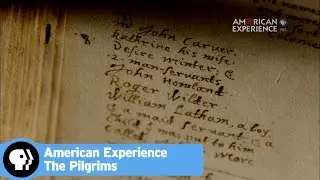 AMERICAN
EXPERIENCE
mr John Carver.
kathrine his wife.
Desire Winter, &
2. man-servants
John Howland
Roger Wilder.
William Latham, a boy.
& a maid servant, &
Child was put to him
called More
8.
PBS
American Experience
The Pilgrims